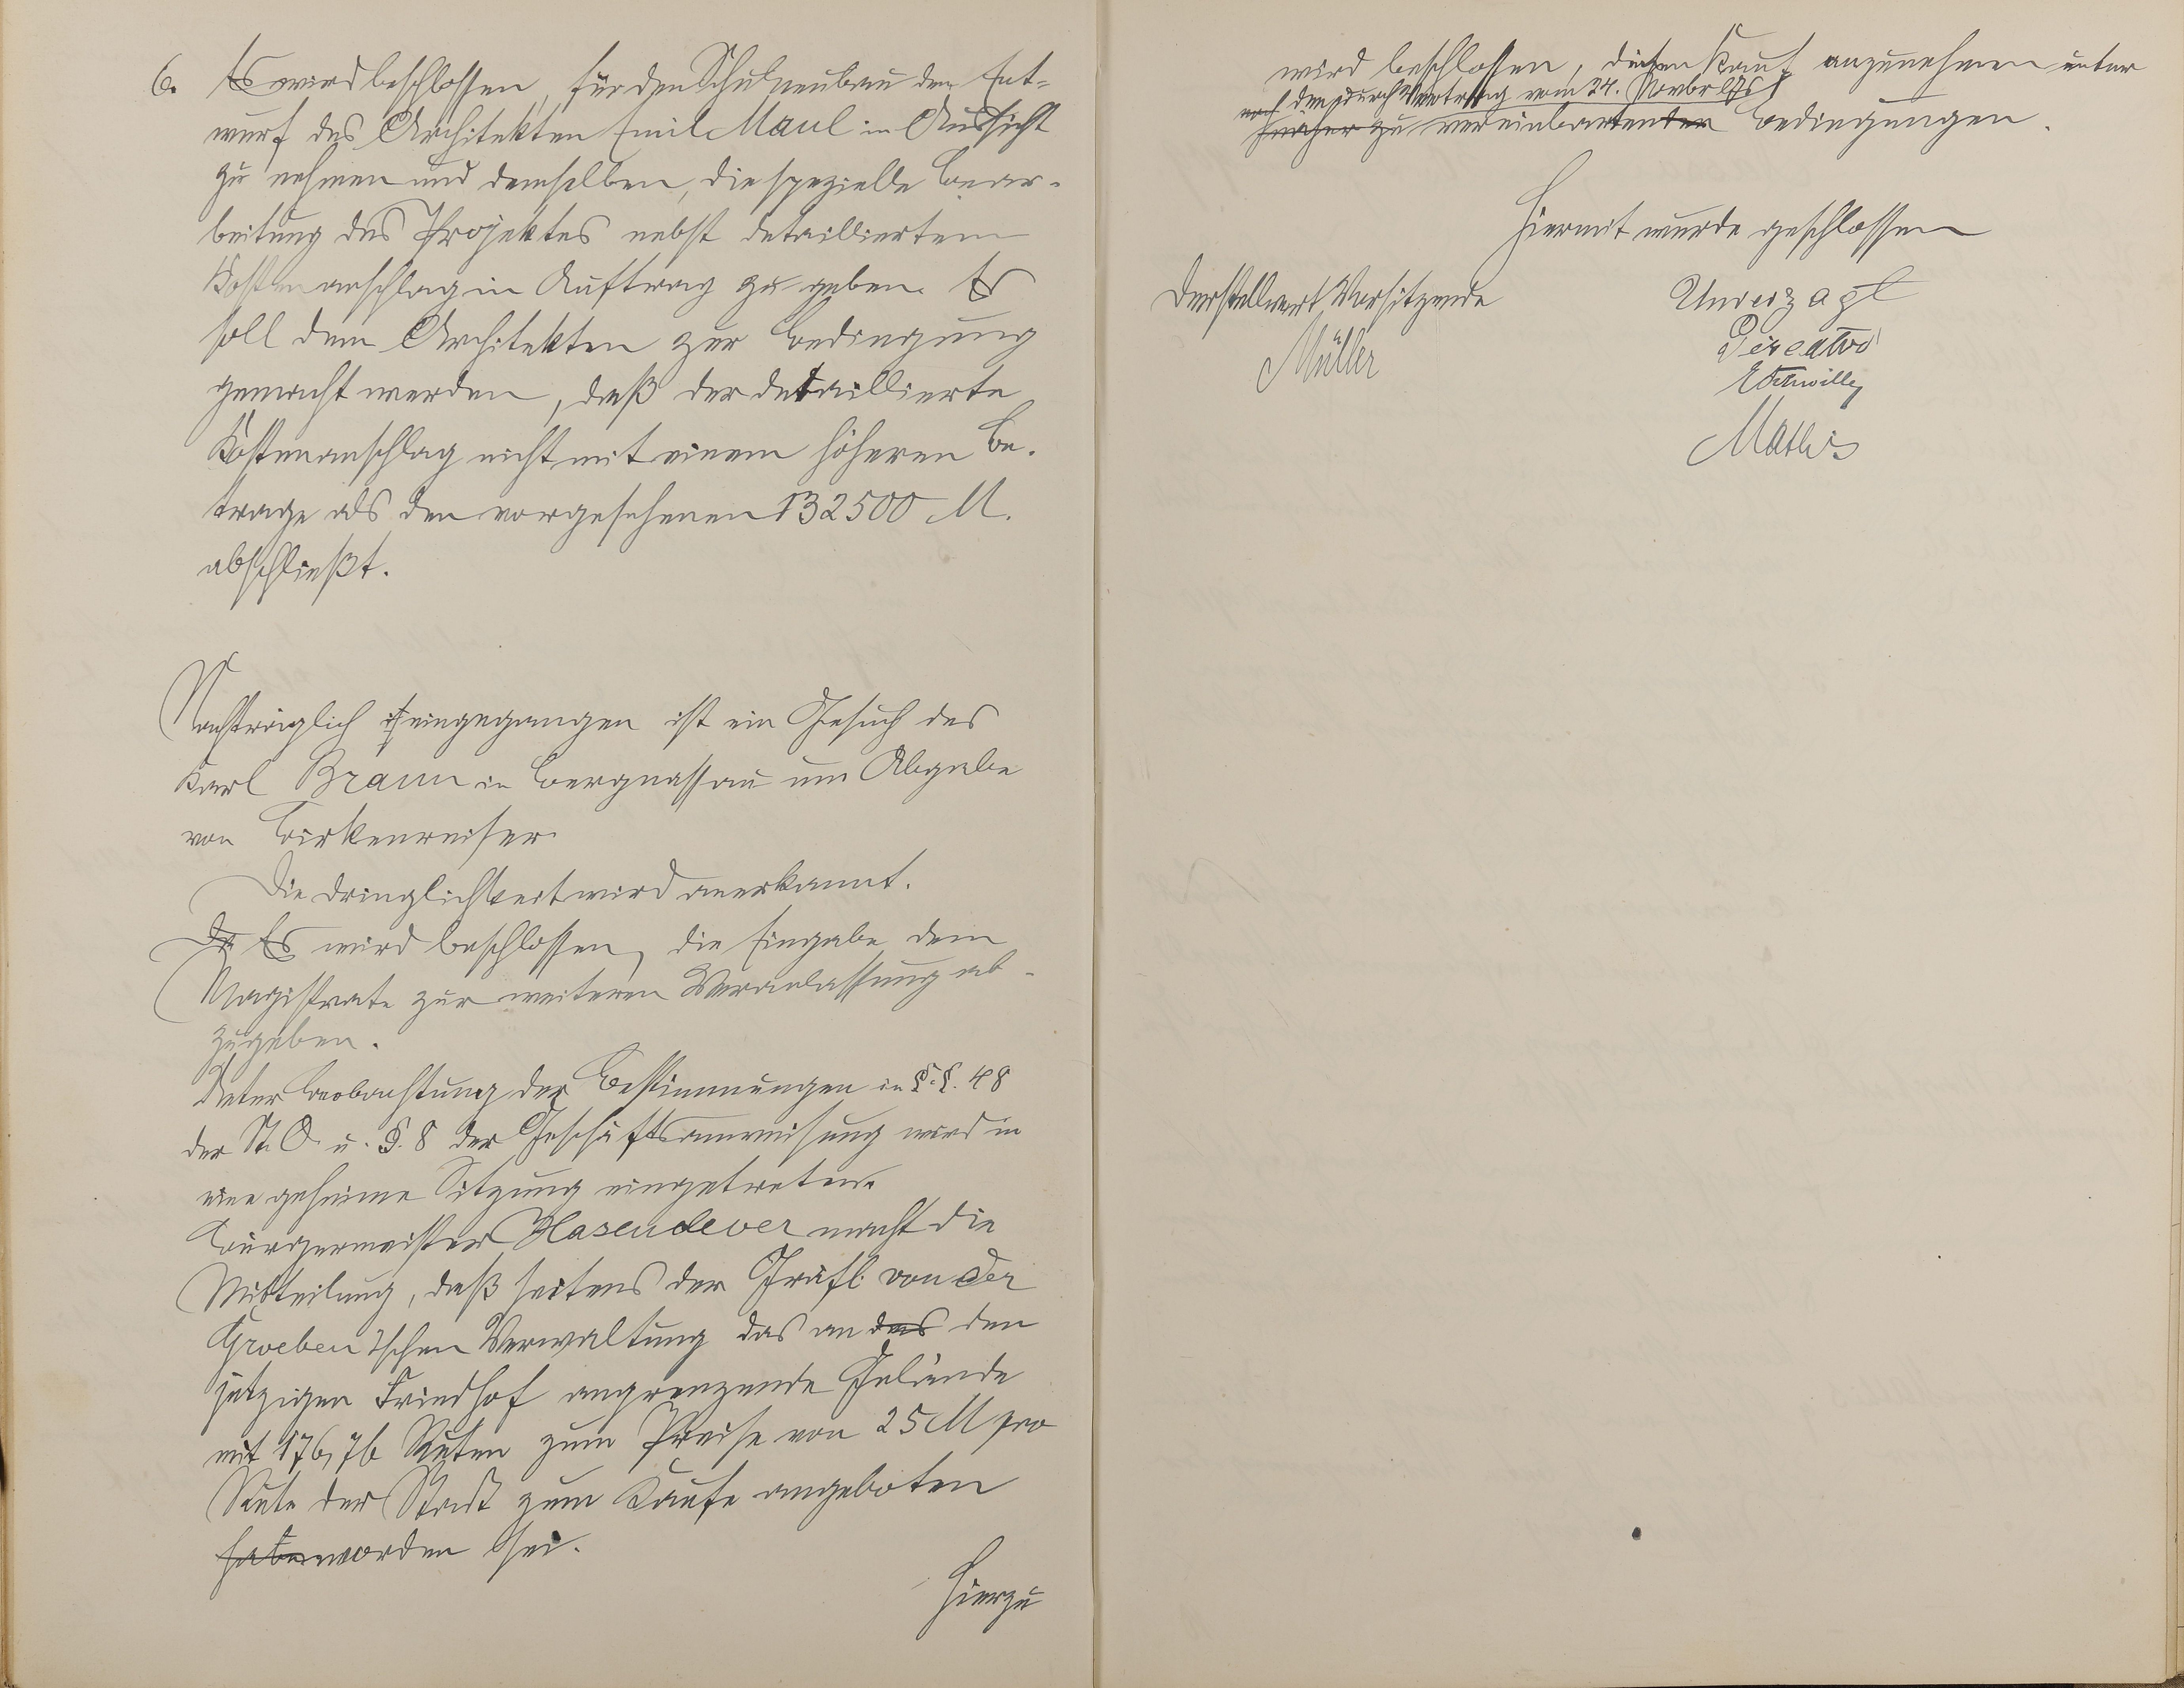 6. Es wird beschlossen, für den Schulneubau den Ent-
wurf des Architekten Emil Maul in Aussicht
zu nehmen und demselben, die spezielle Bear-
beitung des Projektes nebst detailliertem
Kostenanschlag in Auftrag zu geben. Es
soll dem Architekten zur Bedingung
gemacht werden, daß der detaillierte
Kostenanschlag nicht mit einem höheren Be-
trage als den vorgesehenen 132500 M.
abschließt.
Nachträglich eingegangen ist ein Gesuch des
Karl Braun in Bergnassau um Abgabe
von Birkenreiser.
Die Dringlichkeit wird anerkannt.
Es wird beschlossen, die Eingabe dem
Magistrate zur weiteren Veranlassung ab-
zugeben.
Unter Beobachtung der Bestimmungen in §.§. 48
der St. O. u. §. 8 der Geschäftsanweisung wird in
eine geheime Sitzung eingetreten.
Bürgermeister Hasenclever macht die
Mitteilung, daß seitens der Gräfl. von der
Groeben'schen Verwaltung das an das den
jetzigen Friedhof angrenzende Gelände
mit 176,76 Ruten zum Preise von 25 M pro
Rute der Stadt zum Kaufe angeboten
habe worden sei.
Hierzu
wird beschlossen, diesen Kauf anzunehmen unter
den durch Vertrag vom 24. Novbr
früher zu vereinbarten Bedingungen.
Hiermit wurde geschlossen
Der stellvert. Vorsitzende
Unverzagt
Müller
Mathis